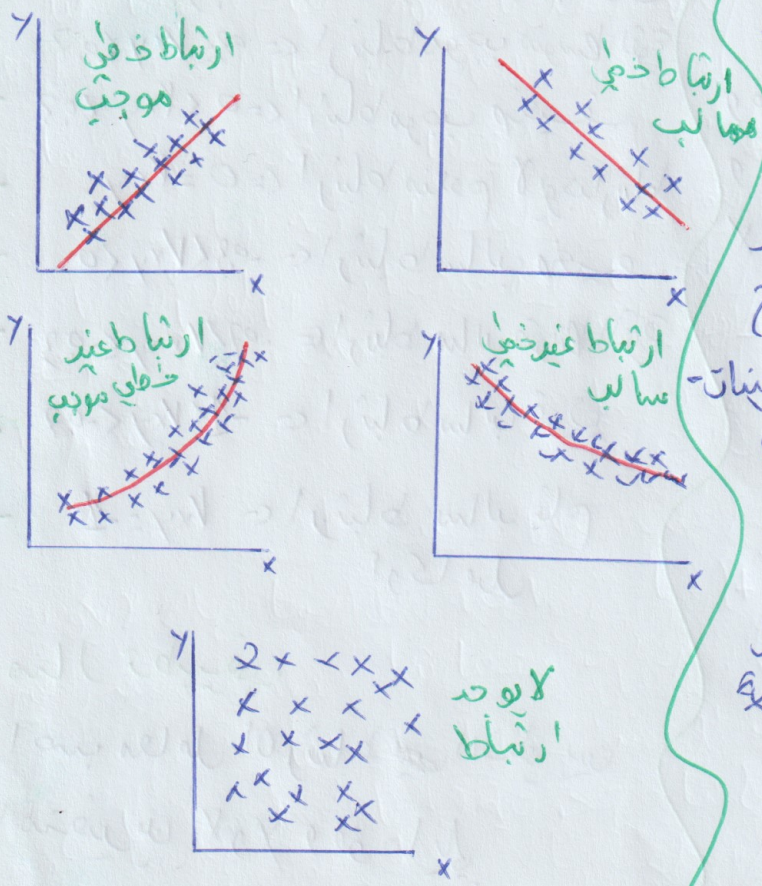 Y
ارتباط خطي
موجب
X
Y
ارتباط خطي
سالب
X
Y
ارتباط غير
خطي موجب
X
Y
ارتباط غير خطي
سالب
X
Y
لا يوجد
ارتباط
X